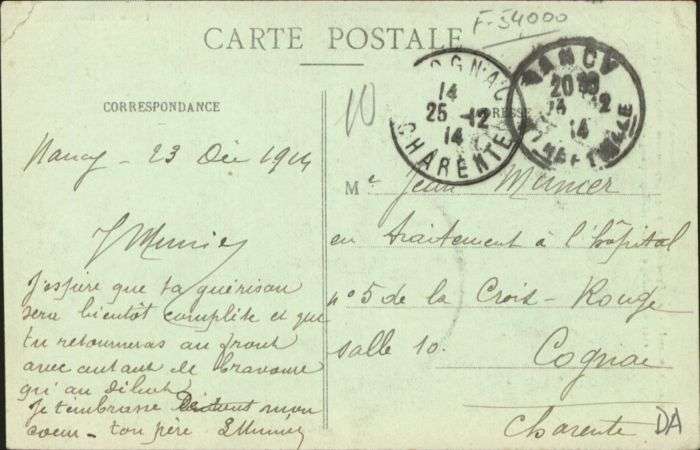 F-54000
CARTE POSTALE
CORRESPONDANCE
10
ADRESSE
COGNAC
14
25 -12
14
CHARENTE
NANCY
20
14 12
14
MRTHE-ET-MLLE
Nancy - 23 Déc 1914
Mr Jean Munier
en traitement à l'hôpital
n° 5 de la Croix-Rouge
salle 10.
Cognac
Charente
DA
J Munier
J'espère que ta guérison
sera bientôt complète et que
tu retourneras au front
avec autant de bravoure
qu'au début
Je t'embrasse mon
coeur - ton père Munier